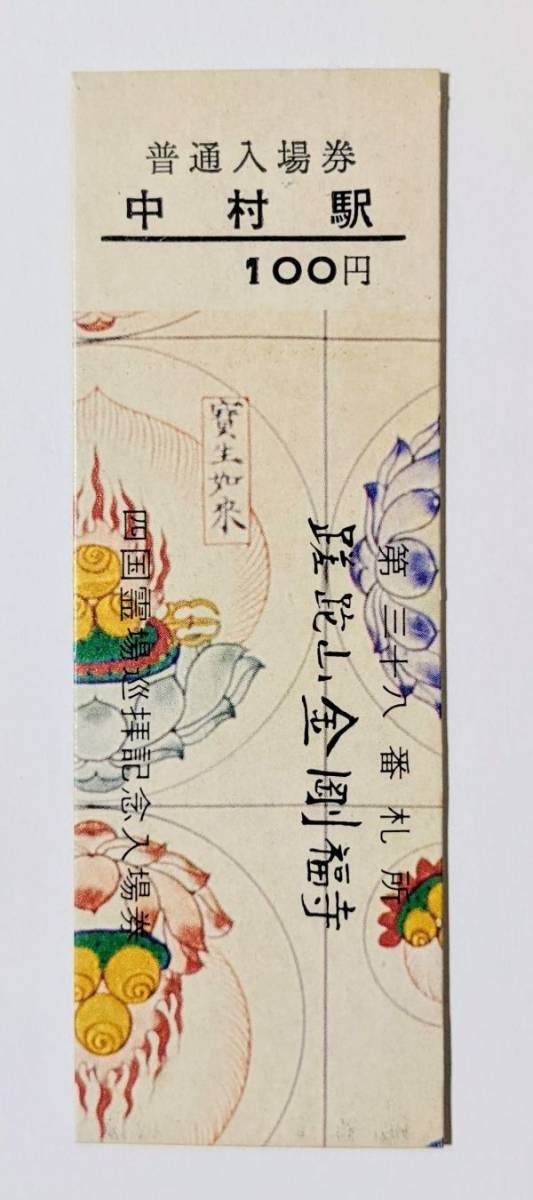 普通入場券
中村駅
100円
寶生如來
第三十八番札所
蹉跎山金剛福寺
四国霊場巡拝記念入場券